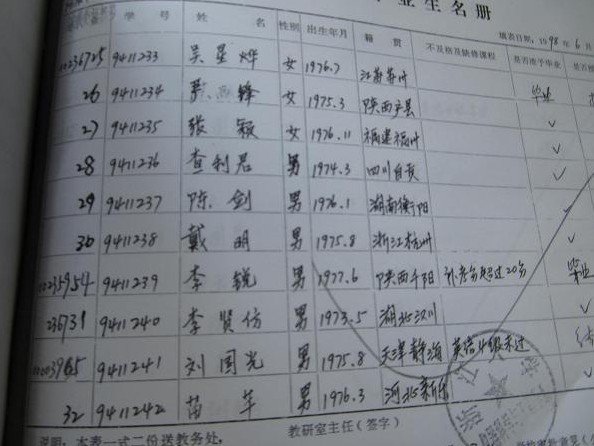 业生名册
填表日期：1998年6月
学号 姓名 性别 出生年月 籍贯 不及格及缺修课程 是否准予毕业
10236725 9411233 吴星烨 女 1976.7 江苏苏州 毕业
26 9411234 锋 女 1975.3 陕西户县 ✓
27 9411235 张颖 女 1976.11 福建福州 ✓
28 9411236 查利君 男 1974.3 四川自贡 ✓
29 9411237 陈剑 男 1976.1 湖南衡阳
30 9411238 戴明 男 1975.8 浙江杭州 ✓
10235954 9411239 李锐 男 1977.6 陕西千阳 补考分超过20分 毕业
236731 9411240 李贤仿 男 1973.5 湖北汉川 ✓
9411241 刘国光 男 1975.8 天津静海 英语四级未过
32 9411242 苗苹 男 1976.3 河北新乐 ✓
说明：本表一式二份送教务处。 教研室主任（签字）